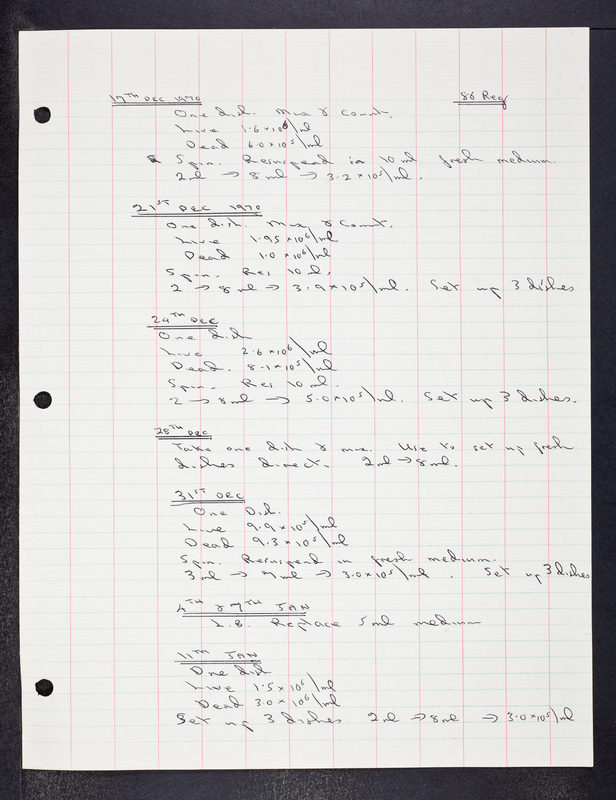 17TH DEC 1970 86 Reg
One dish. Mix & Count.
Live 1.6 x 10⁶/ml
Dead 6.0 x 10⁵/ml
Spin. Resuspend in 10 ml fresh medium.
2ml → 8 ml → 3.2 x 10⁵/ml.
21ST DEC 1970
One dish. Mix & Count.
Live 1.95 x 10⁶/ml
Dead 1.0 x 10⁶/ml
Spin. Res 10 ml.
2 → 8 ml → 3.9 x 10⁵/ml. Set up 3 dishes
24TH DEC
One dish
Live 2.6 x 10⁶/ml
Dead. 8.1 x 10⁵/ml
Spin. Res 10 ml.
2 → 8 ml → 5.0 x 10⁵/ml. Set up 3 dishes.
28TH DEC
Take one dish & mix. Use to set up fresh
dishes direct. 2ml → 8ml.
31ST DEC
One Dish.
Live 9.9 x 10⁵/ml
Dead 9.3 x 10⁵/ml
Spin. Resuspend in fresh medium.
3ml → 7ml → 3.0 x 10⁵/ml. Set up 3 dishes
4TH & 7TH JAN
L.8. Replace 5ml medium
11TH JAN
One dish
Live 1.5 x 10⁶/ml
Dead 3.0 x 10⁶/ml
Set up 3 dishes 2ml → 8ml → 3.0 x 10⁵/ml